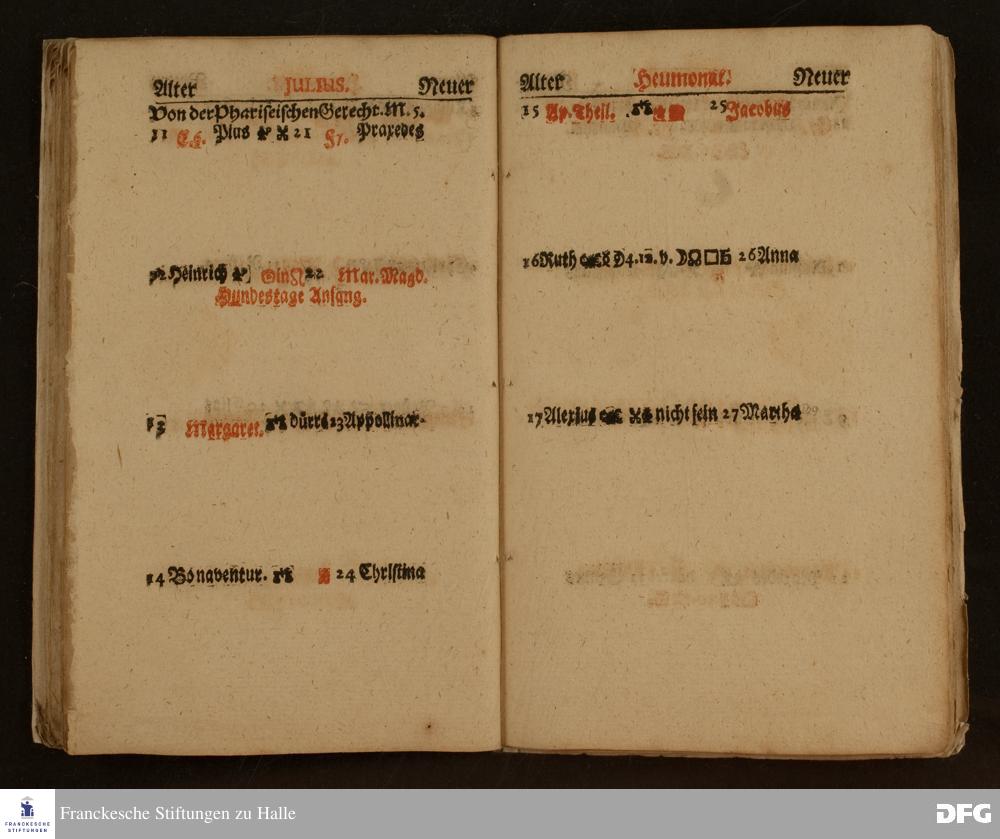 Alter JULIUS. Neuer
Von der Phariseischen Gerecht. M. 5.
11 C6. Pius 21 F7. Praxedes
12 Heinrich Sin ♌ 22 Mar. Magd.
Hundestage Anfang.
13 Margaret. dürre 23 Appollinar.
14 Bonaventur. 24 Christina
Alter Heumonat. Neuer
15 Ap. Theil. 25 Jacobus
16 Ruth 4.12.v. ☽☊□♄ 26 Anna
17 Alexius nicht sein 27 Martha
FRANCKESCHE STIFTUNGEN
Franckesche Stiftungen zu Halle
DFG